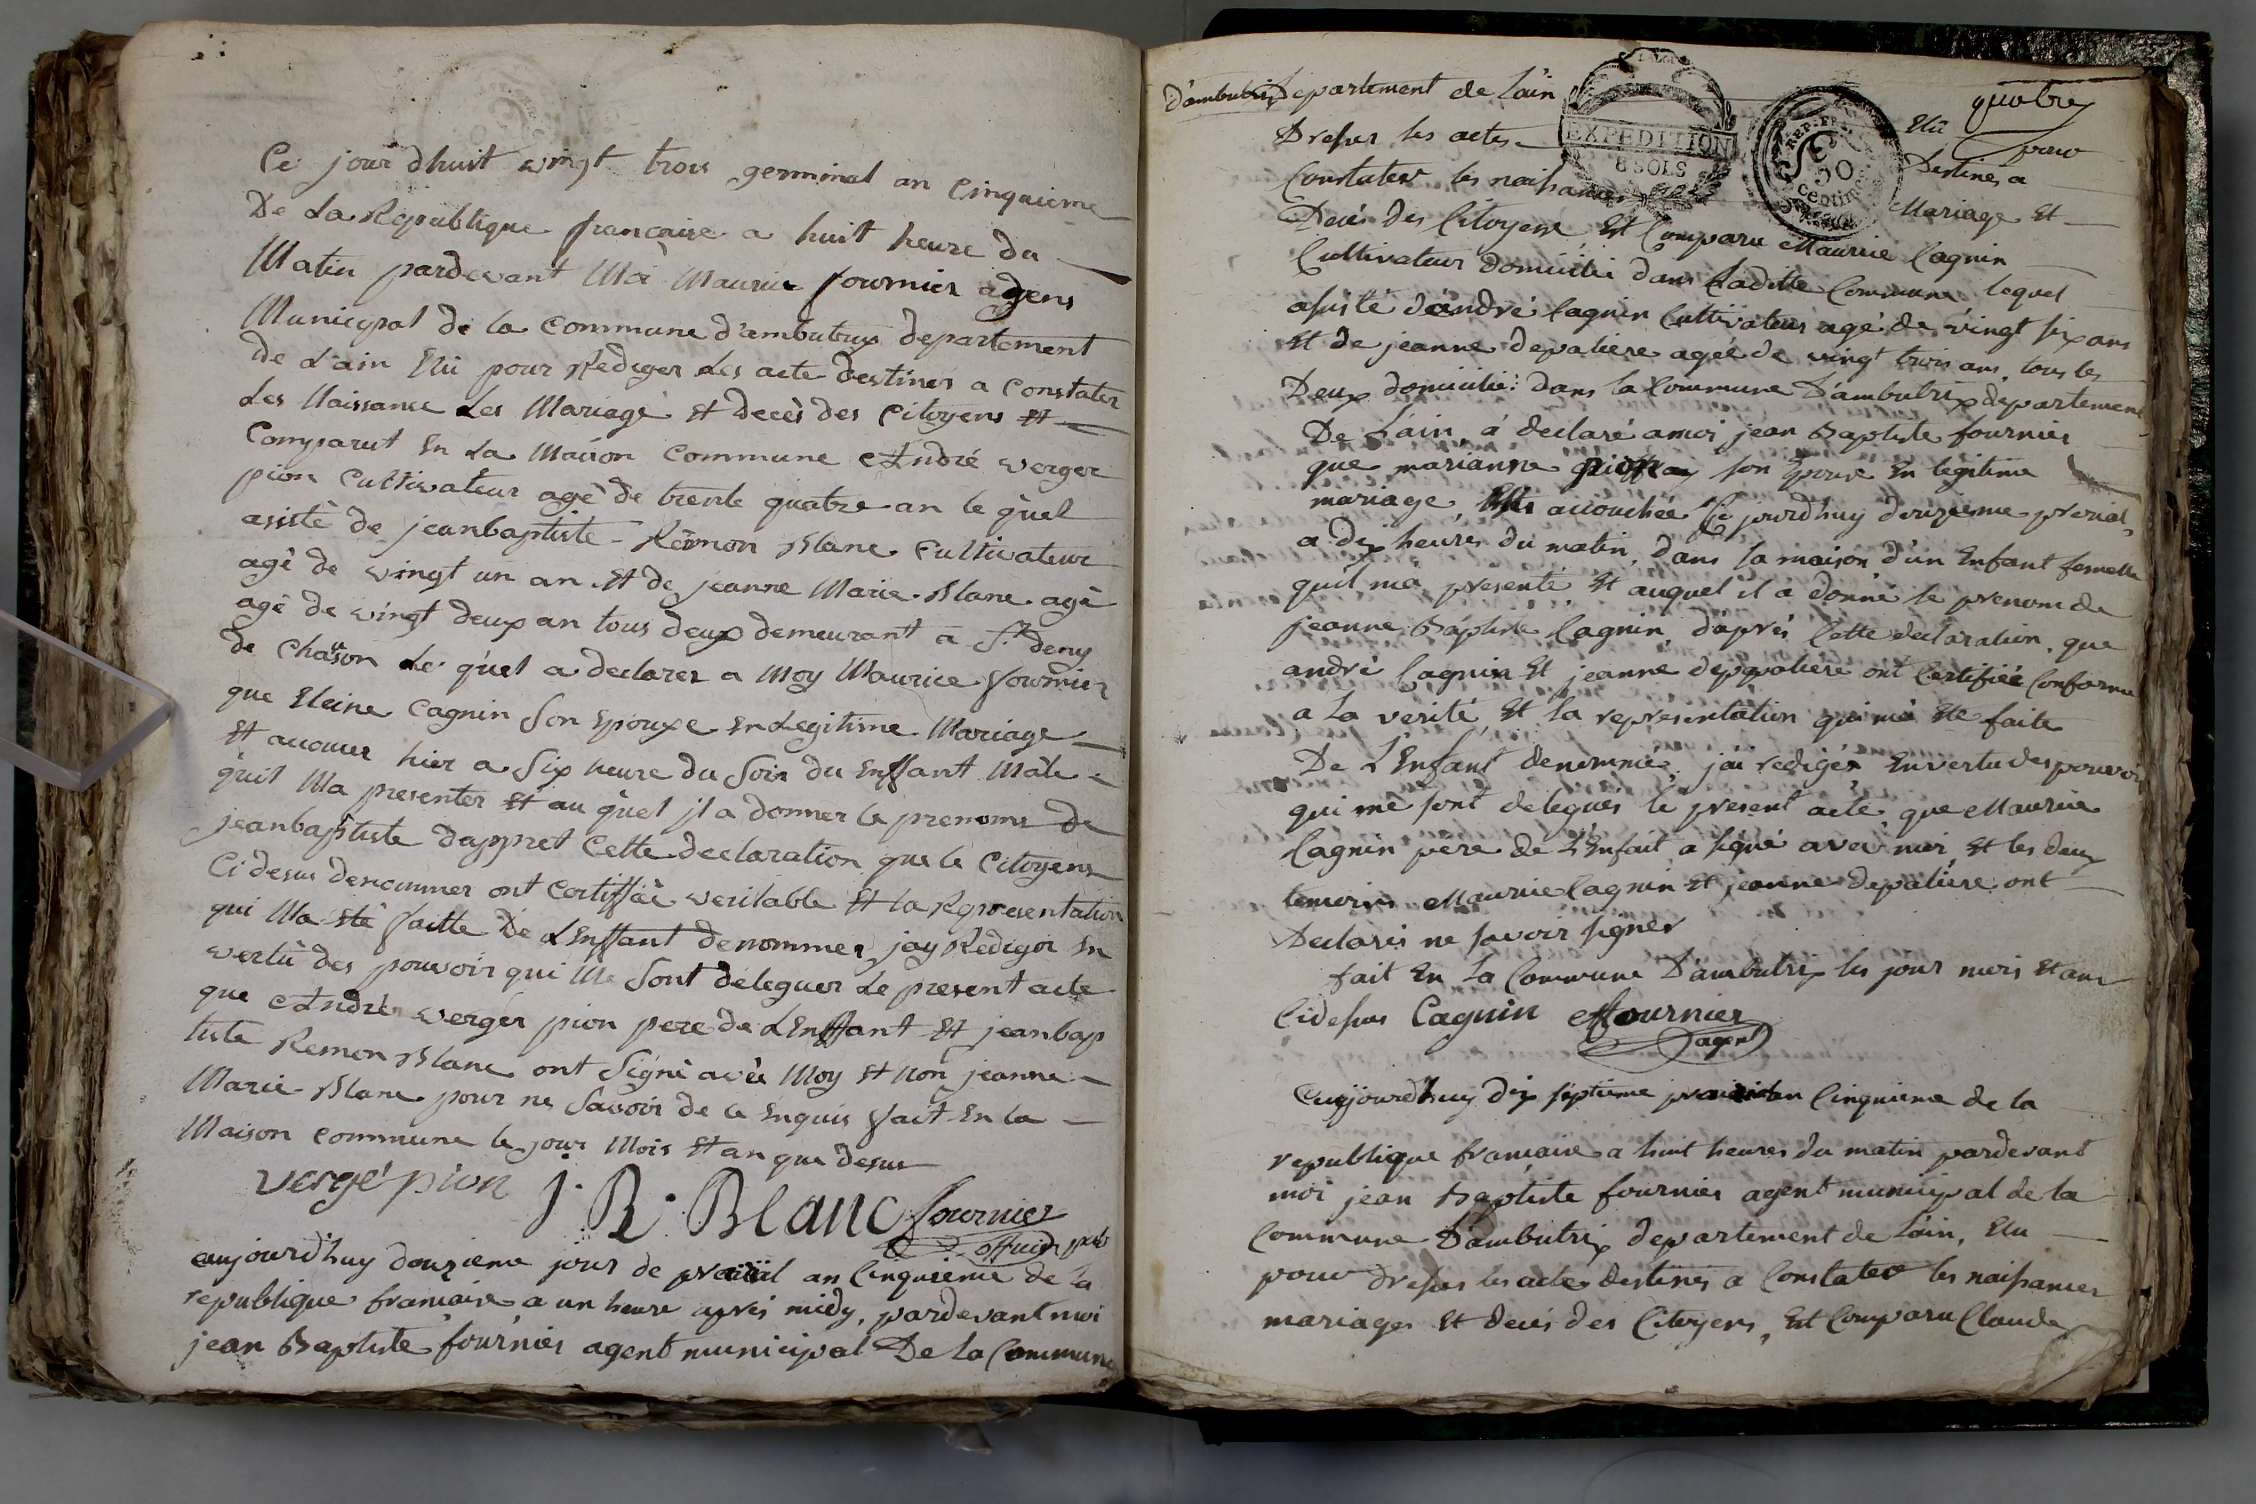 Ce jour dhuit vingt trois germinal an Cinquieme
De La Republique francaise a huit heure du
Matin pardevant Moi Maurice fournier agens
Municipal de la Commune d'ambutrix departement
de L'ain Elü pour Rediger Les acte Destines a Constater
Les Naissance Les Mariage Et decès des Citoyens Et
Comparut En La Maison Commune André verger
pion Cultivateur agé de trente quatre an le quel
asisté de jeanbaptiste Rémon Blanc Cultivateur
agé de vingt un an Et de jeanne Marie Blanc agé
agé de vingt deux an tous deux demeurant a St. deny
de Chosson Le quel a declarer a Moy Maurice fournier
que Eleine Cagnin Son Epouxe En Legitime Mariage
Et acouer hier a Six heure du Soir du Enffant Mâle
quil Ma presenter Et au quel jl a donner le prenoms de
jeanbaptiste dappret Cette declaration que le Citoyens
Ci desus denommer ont Certiffiée veritable Et la Representation
qui Ma eté faitte de LEnffant denommer jay Rediger En
vertü des pouvoir qui Me Sont déleguer Le present acte
que André verger pion pere de LEnffant Et jeanbap
tiste Remon Blanc ont Signé avec Moy Et non jeanne
Marie Blanc pour ne Savoir de ce Enquis fait En la
Maison Commune le jour Mois Et an que desus
vergé pion J. R. Blanc fournier
officier publ
aujourd'huy douzieme jour de prairial an Cinquieme de la
republique francaise a un heure après midy, pardevant moi
jean Baptiste fournier agent municipal De la Commune
D'ambutrix Departement de L'ain
quatre
Elü pour
EXPEDITION
8 SOLS
REP. FRA.
50
centimes
Dresser les actes Destinés a
Constater les naissances Mariage Et
Decés des Citoyens Est Comparu Maurice Cagnin
Cultivateur domicilié dans Laditte Commune lequel
assisté d'andré Cagnin Cultivateur agé de vingt six ans
Et de jeanne depaliere agée de vingt trois ans, tous les
Deux domicilié dans la Commune D'ambutrix departement
De Lain, a declaré a moi jean Baptiste fournier
que marianne son Epouse En legitime
mariage, Est accouchée Ce jourd'huy douzieme prerial
a dix heures du matin, dans sa maison d'un Enfant femelle
qu'il m'a presenté, Et auquel il a donné le prenom de
jeanne Baptiste Cagnin, d'aprés Cette declaration, que
andré Cagnin Et jeanne depaliere ont Certifiée Conforme
a la verité, Et la representation qui m'a Eté faite
De L'Enfant denommée, j'ai redigér En vertu des pouvoir
qui me sont delegués le present acte que Maurice
Cagnin pere de L'Enfant a signé avec moi, Et les deux
temoins Maurice Cagnin Et jeanne depaliere ont
Declarés ne savoir signer
fait En la Commune D'ambutrix les jour mois Et an
Cidessus Cagnin fournier
agent
aujourdhuy dix septieme prairial an Cinquieme de la
republique francaise a huit heures du matin pardevant
moi jean Baptiste fournier agent municipal de la
Commune D'ambutrix departement de Lain, Elu
pour dresser les actes destinés a Constater les naissances
mariages Et decés des Citoyens, Est Comparu Claude